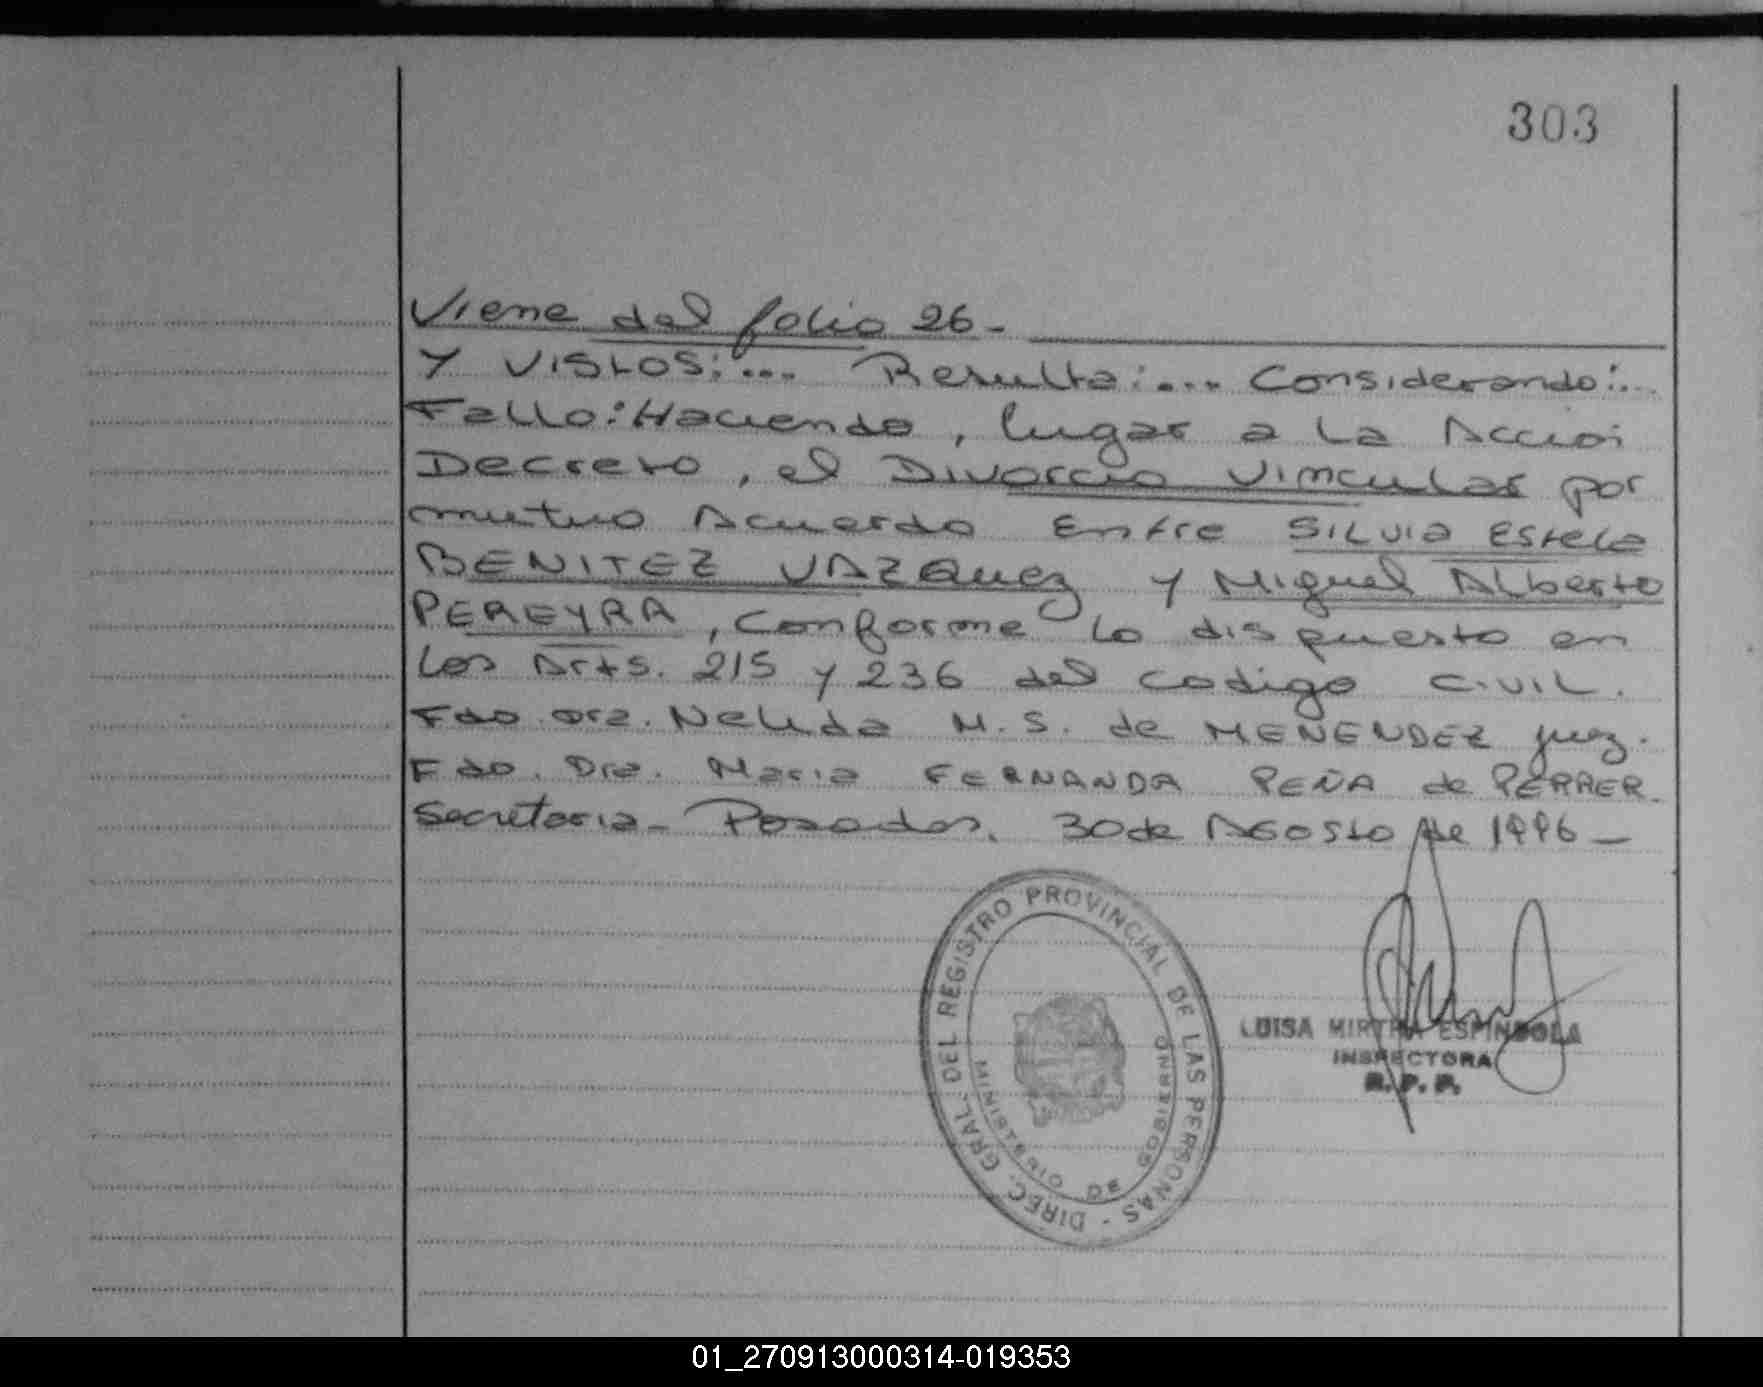 303
Viene del folio 26-
Y VISTOS:... Resulta:... Considerando:...
Fallo: Haciendo, lugar a la Accioi
Decreto, el Divorcio Vincular por
mutuo Acuerdo Entre SILVIA Estela
BENITEZ VAZQuez y Miguel Alberto
PEREYRA, Conforme lo dispuesto en
los Arts. 215 y 236 del codigo CIVIL.
Fdo. Dra. Nelida M. S. de MENENDEZ juez.
Fdo. Dra. Maria FERNANDA PEÑA de PERRER.
Secretaria- Posadas, 30 de AGOSTO de 1996-
DIREC. GRAL. DEL REGISTRO PROVINCIAL DE LAS PERSONAS -
MINISTERIO DE GOBIERNO
LUISA MIRTHA ESPINDOLA
INSPECTORA
R. P. P.
01_270913000314-019353